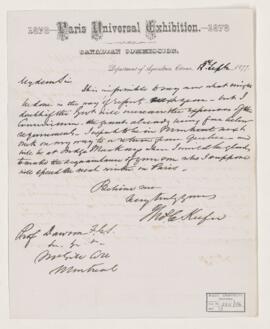 1878 Paris Universal Exhibition. 1878
CANADIAN COMMISSION.
Department of Agriculture, Ottawa, 18 Sept 1877.
My dear Sir
It is impossible to say now what might
be done in the way of report — but I
doubt if the Govt will increase the expenses of the
Commission the grant already being far below
requirements. I expect to be in Montreal next
week on my way to & return from Quebec and
will be at Judge Mackay's then I would be glad
to make the acquaintance of
will spend the next winter in Paris.
Believe me
Very truly yours
Tho C Keefer
Prof Dawson F.G.S.
&c &c
McGill Coll
Montreal